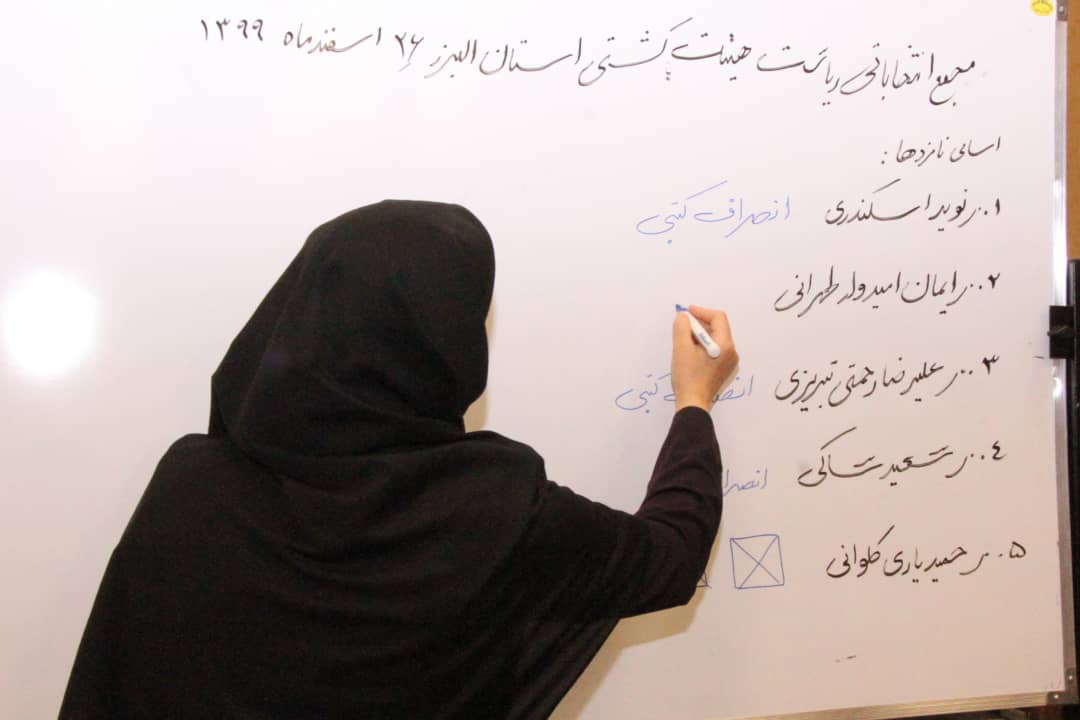 مجمع انتخاباتی ریاست هیئت کشتی استان البرز ۲۶ اسفندماه ۱۳۹۹
اسامی نامزدها :
۱. نوید اسکندری انصراف کتبی
۲. ایمان امیدوار طهرانی
۳. علیرضا رحمتی تبریزی کتبی
۴. سعید شاکی
۵. حمید یاری کلوانی